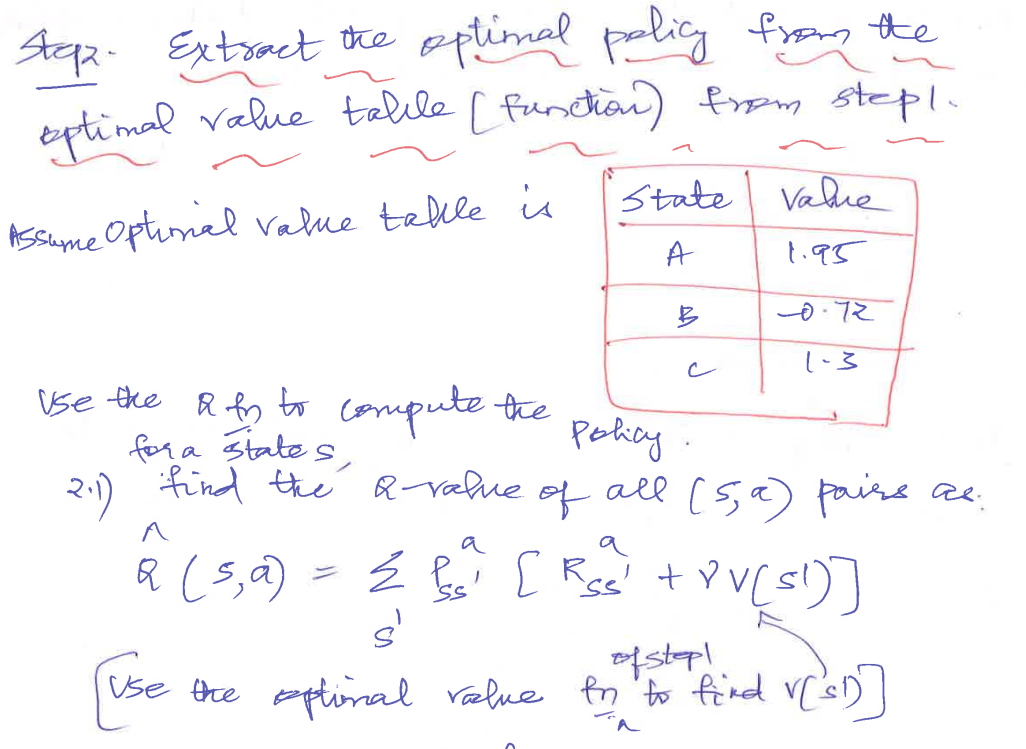 Step2. Extract the optimal policy from the
optimal value table (function) from step1.
Assume Optimal value table is
State Value
A 1.95
B -0.72
C 1.3
Use the Q fn to compute the policy.
for a state s,
2.1) find the Q-value of all (s,a) pairs as.
Q̂ (s,a) = Σ_{s'} P^a_{ss'} [ R^a_{ss'} + γ V(s') ]
[Use the optimal value fn of step1 to find V(s')]